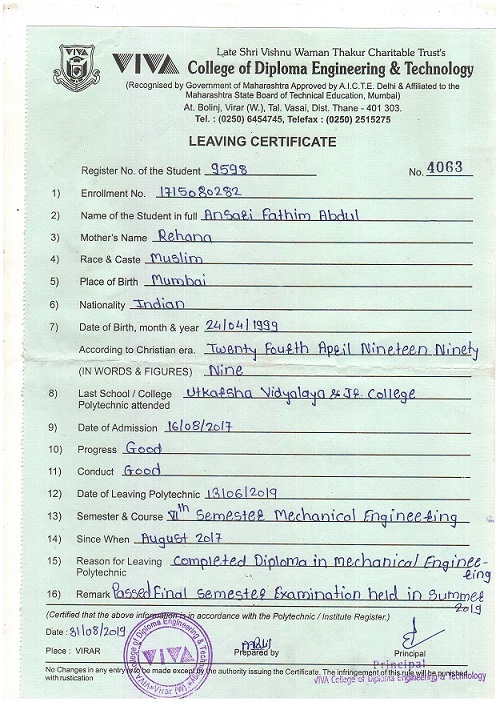 VIVA
Late Shri Vishnu Waman Thakur Charitable Trust's
College of Diploma Engineering & Technology
(Recognised by Government of Maharashtra Approved by A.I.C.T.E. Delhi & Affiliated to the
Maharashtra State Board of Technical Education, Mumbai)
At. Bolinj, Virar (W.), Tal. Vasai, Dist. Thane - 401 303.
Tel. : (0250) 6454745, Telefax : (0250) 2515275
LEAVING CERTIFICATE
Register No. of the Student 9598 No. 4063
1) Enrollment No. 1715080282
2) Name of the Student in full Ansari Fathim Abdul
3) Mother's Name Rehana
4) Race & Caste Muslim
5) Place of Birth Mumbai
6) Nationality Indian
7) Date of Birth, month & year 24/04/1999
According to Christian era. Twenty Fourth April Nineteen Ninety
(IN WORDS & FIGURES) Nine
8) Last School / College Utkarsha Vidyalaya & Jr. College
Polytechnic attended
9) Date of Admission 16/08/2017
10) Progress Good
11) Conduct Good
12) Date of Leaving Polytechnic 13/06/2019
13) Semester & Course VIth Semester Mechanical Engineering
14) Since When August 2017
15) Reason for Leaving Completed Diploma in Mechanical Enginee-
Polytechnic ring
16) Remark Passed Final Semester Examination held in Summer
2019
(Certified that the above information is in accordance with the Polytechnic / Institute Register.)
Date : 31/08/2019
Place : VIRAR Prepared by Principal
Principal
No Changes in any entry to be made except by the authority issuing the Certificate. The infringement of this rule will be punished
with rustication
VIVA College of Diploma Engineering & Technology
College of Diploma Engineering & Technology
VIVA Virar (W)